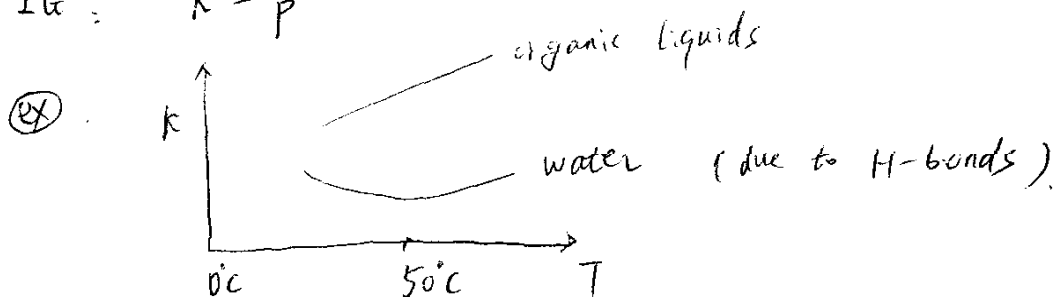 IG :
organic liquids
ex . K
water ( due to H-bonds ).
0°C 50°C T